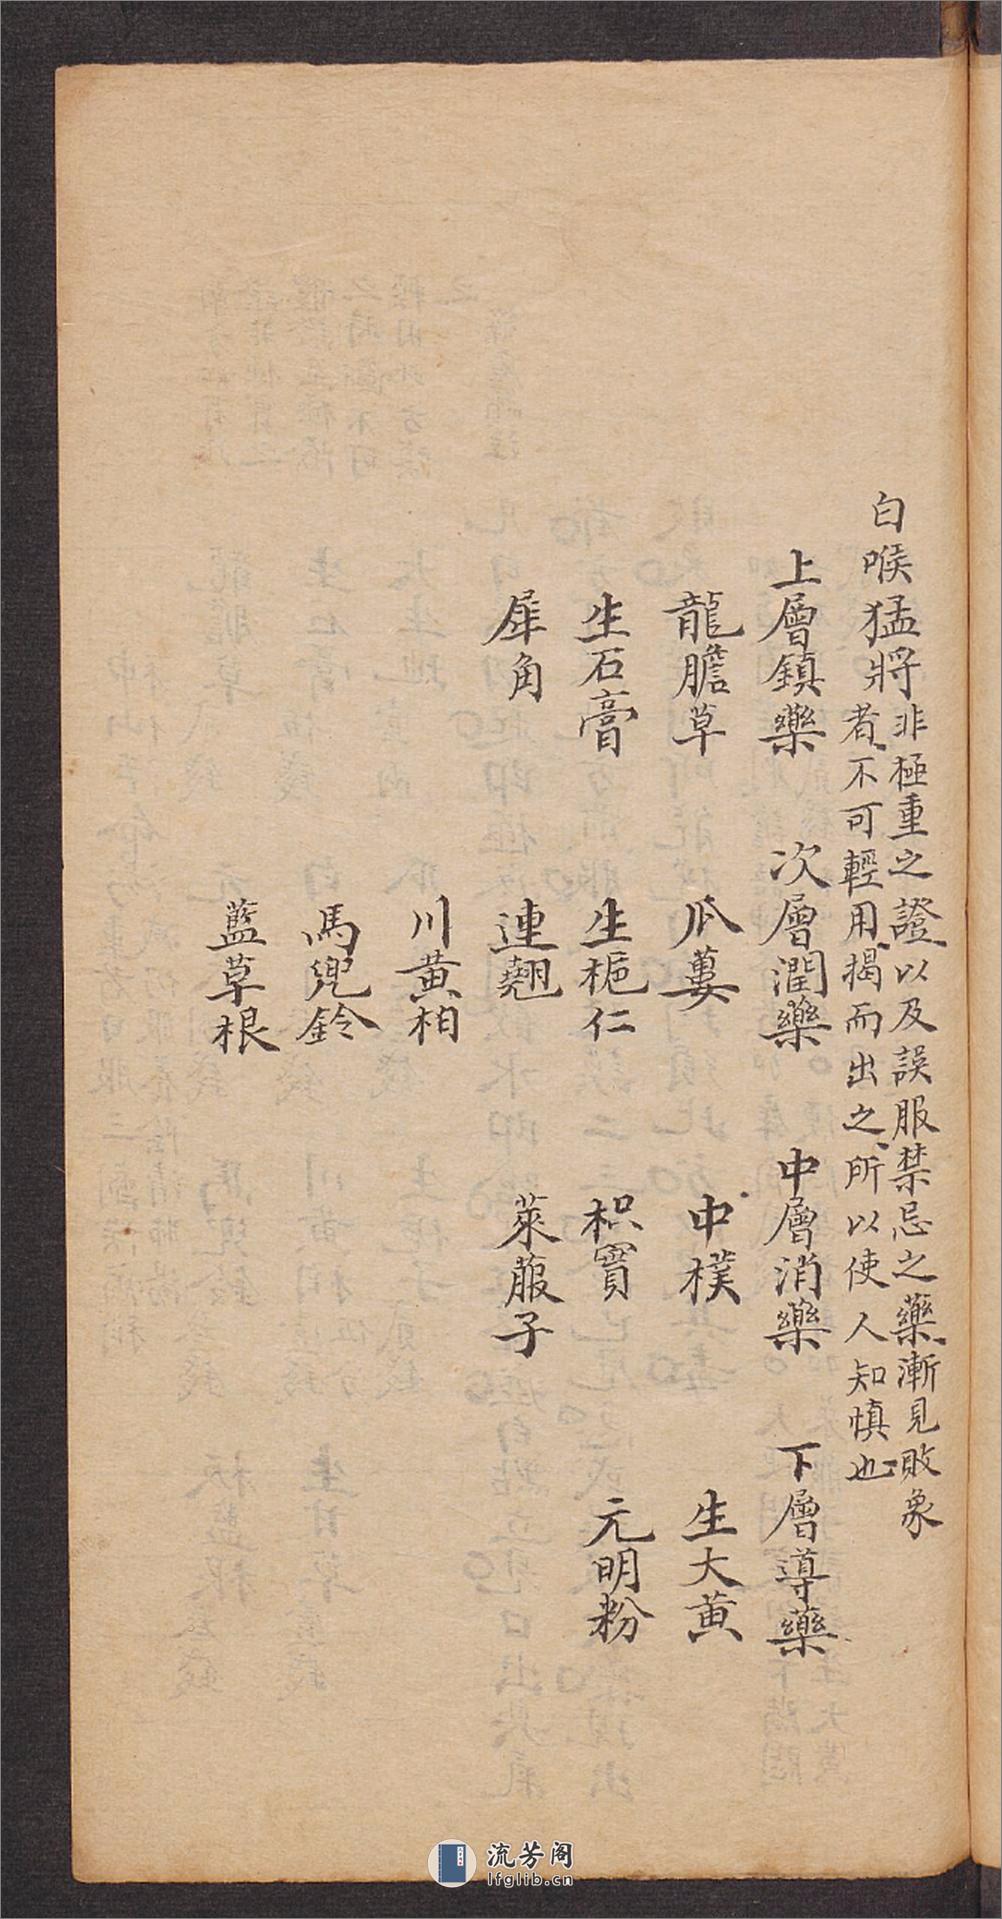 白喉猛將非極重之證以及誤服禁忌之藥漸見敗象
者不可輕用揭而出之所以使人知慎也
上層鎮藥 次層潤藥 中層消藥 下層導藥
龍膽草 瓜蔞 中樸 生大黃
生石膏 生梔仁 枳實 元明粉
犀角 連翹 萊菔子
川黃柏
馬兜鈴
藍草根
流芳阁
lfglib.cn